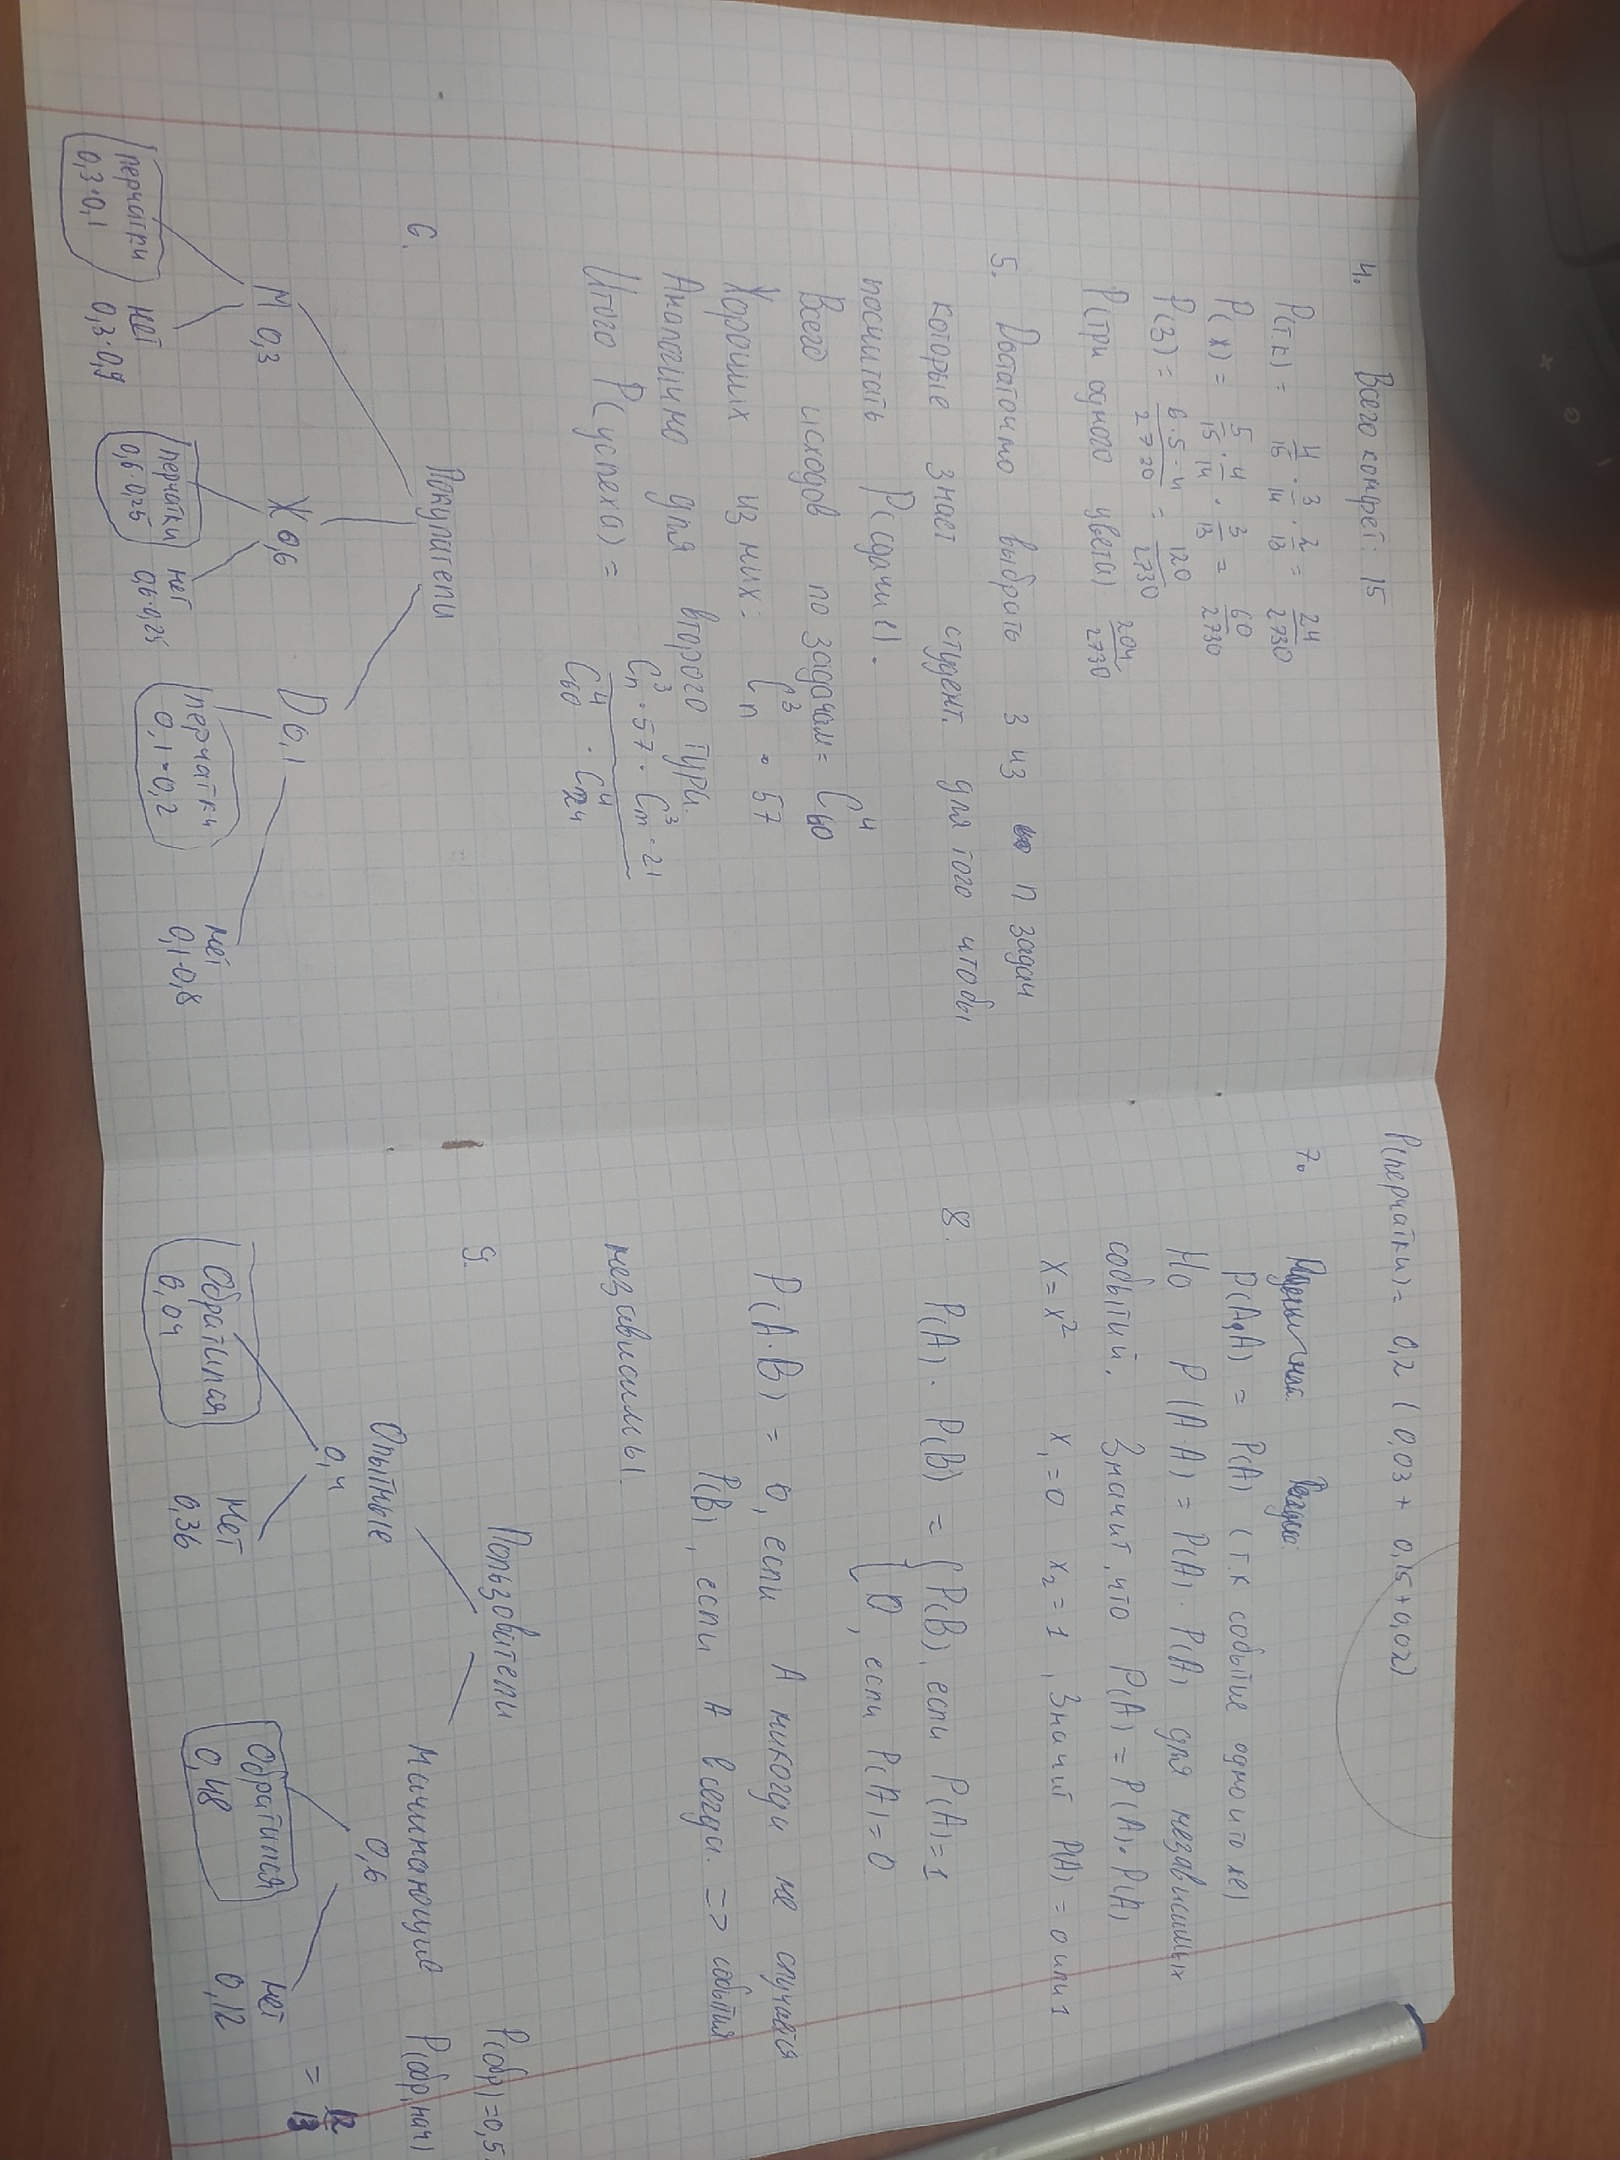 4. Всего конфет: 15
P(т.к) = 4/15 · 3/14 · 2/13 = 24/2730
P(ж) = 5/15 · 4/14 · 3/13 = 60/2730
P(з) = 6·5·4/2730 = 120/2730
P(три одного цвета) 204/2730
5. Достаточно выбрать 3 из n задач
которые знает студент. для того чтобы
посчитать P(сдачи 1).
Всего исходов по задачам = C_60^4
Хороших из них: C_n^3 · 57
Аналогично для второго тура.
Итого P(успеха) = C_n^3 · 57 · C_m^3 · 21 / C_60^4 · C_24^4
6. Покупатели
М 0,3 Ж 0,6 D 0,1
перчатки нет перчатки нет перчатки нет
0,3·0,1 0,3·0,9 0,6·0,25 0,6·0,25 0,1·0,2 0,1·0,8
P(перчатки) = 0,2 (0,03 + 0,15+0,02)
7.
P(A,A) = P(A) (т.к событие одно и то же)
Но P(A·A) = P(A) · P(A) для независимых
событий. Значит, что P(A) = P(A)·P(A)
x = x² x₁ = 0 x₂ = 1, Значит P(A) = 0 или 1
8. P(A) · P(B) = { P(B), если P(A)=1
0, если P(A)=0
P(A·B) = 0, если A никогда не случается
P(B), если A всегда. => события
независимы.
9. Пользователи P(обр)=0,5
Опытные Начинающие P(обр,нач)
0,4 0,6
= 12/13
Обратился Нет Обратился нет
0,04 0,36 0,48 0,12